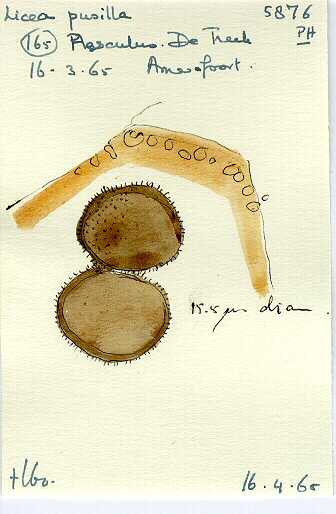 Licea pusilla 5876
165 Aesculus. De Treek PH
16-3-65 Amersfoort.
15.5 µm diam.
+160.
16.4.65